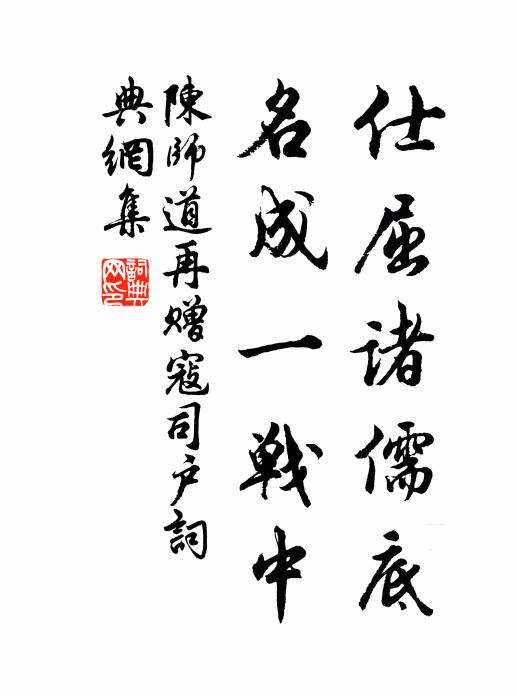 仕屈諸儒底
名成一戰中
陳師道再贈寇司户詞
典網集
詞典
网印